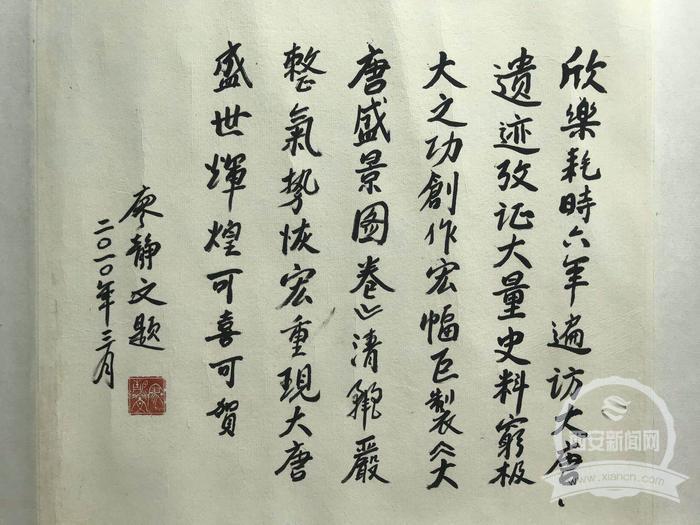 欣樂耗時六年遍訪大唐
遺迹攷证大量史料窮极
大之功創作宏幅巨製《大
唐盛景图卷》清麗嚴
整氣势恢宏重現大唐
盛世煇煌可喜可賀
廖静文题
二〇一〇年三月
西安新闻网
www.xiancn.com